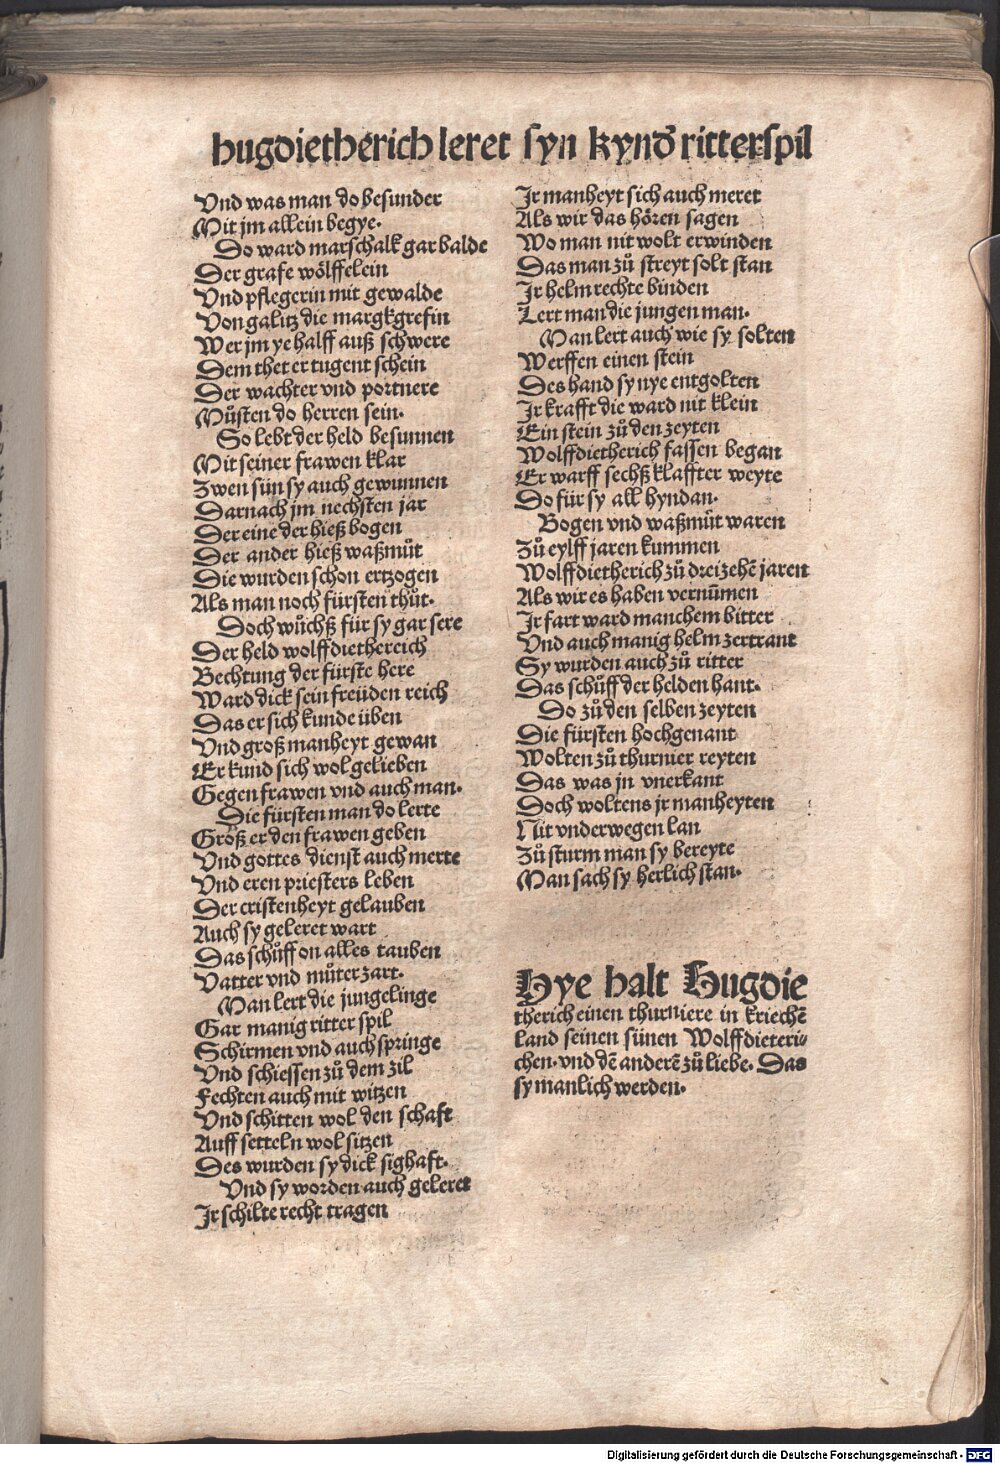 hugdietherich leret syn kynd̄ ritterspil
Vnd was man do besunder
Mit jm allein begye.
Do ward marschalk gar balde
Der grafe wölffelein
Vnd pflegerin mit gewalde
Von galitz die margkgrefin
Wer jm ye halff auß schwere
Dem thet er tugent schein
Der wachter vnd portnere
Můsten do herren sein.
So lebt der held besunnen
Mit seiner frawen klar
Zwen sün sy auch gewunnen
Darnach jm nechsten jar
Der eine der hieß bogen
Der ander hieß waßmůt
Die wurden schon ertzogen
Als man noch fürsten thůt.
Doch wůchß für sy gar sere
Der held wolffdiethereich
Bechtung der fürste here
Ward dick sein freüden reich
Das er sich kunde üben
Vnd groß manheyt gewan
Er kund sich wol gelieben
Gegen frawen vnd auch man.
Die fürsten man do lerte
Größ er den frawen geben
Vnd gottes dienst auch merte
Vnd eren priesters leben
Der cristenheyt gelauben
Auch sy geleret wart
Das schůff on alles tauben
Vatter vnd můter zart.
Man lert die jungelinge
Gar manig ritter spil
Schirmen vnd auch springe
Vnd schiessen zů dem zil
Fechten auch mit witzen
Vnd schitten wol den schaft
Auff setteln wol sitzen
Des wurden sy dick sighaft.
Vnd sy worden auch geleret
Jr schilte recht tragen
Jr manheyt sich auch meret
Als wir das hören sagen
Wo man nit wolt erwinden
Das man zů streyt solt stan
Jr helm rechte binden
Lert man die jungen man.
Man lert auch wie sy solten
Werffen einen stein
Des hand sy nye entgolten
Jr krafft die ward nit klein
Ein stein zů den zeyten
Wolffdietherich fassen began
Er warff sechß klaffter weyte
Do für sy all hyndan.
Bogen vnd waßmůt waren
Zů eylff jaren kummen
Wolffdietherich zů dreizehē jaren
Als wir es haben vernūmen
Jr fart ward manchem bitter
Vnd auch manig helm zertrant
Sy wurden auch zů ritter
Das schůff der helden hant.
Do zů den selben zeyten
Die fürsten hochgenant
Wolten zů thurnier reyten
Das was jn vnerkant
Doch woltens jr manheyten
Nit vnderwegen lan
Zů sturm man sy bereyte
Man sach sy herlich stan.
Hye halt Hugdie
therich einen thurniere in kriechē
land seinen sünen Wolffdieteri⸗
chen. vnd dē anderē zů liebe. Das
sy manlich werden.
Digitalisierung gefördert durch die Deutsche Forschungsgemeinschaft - DFG